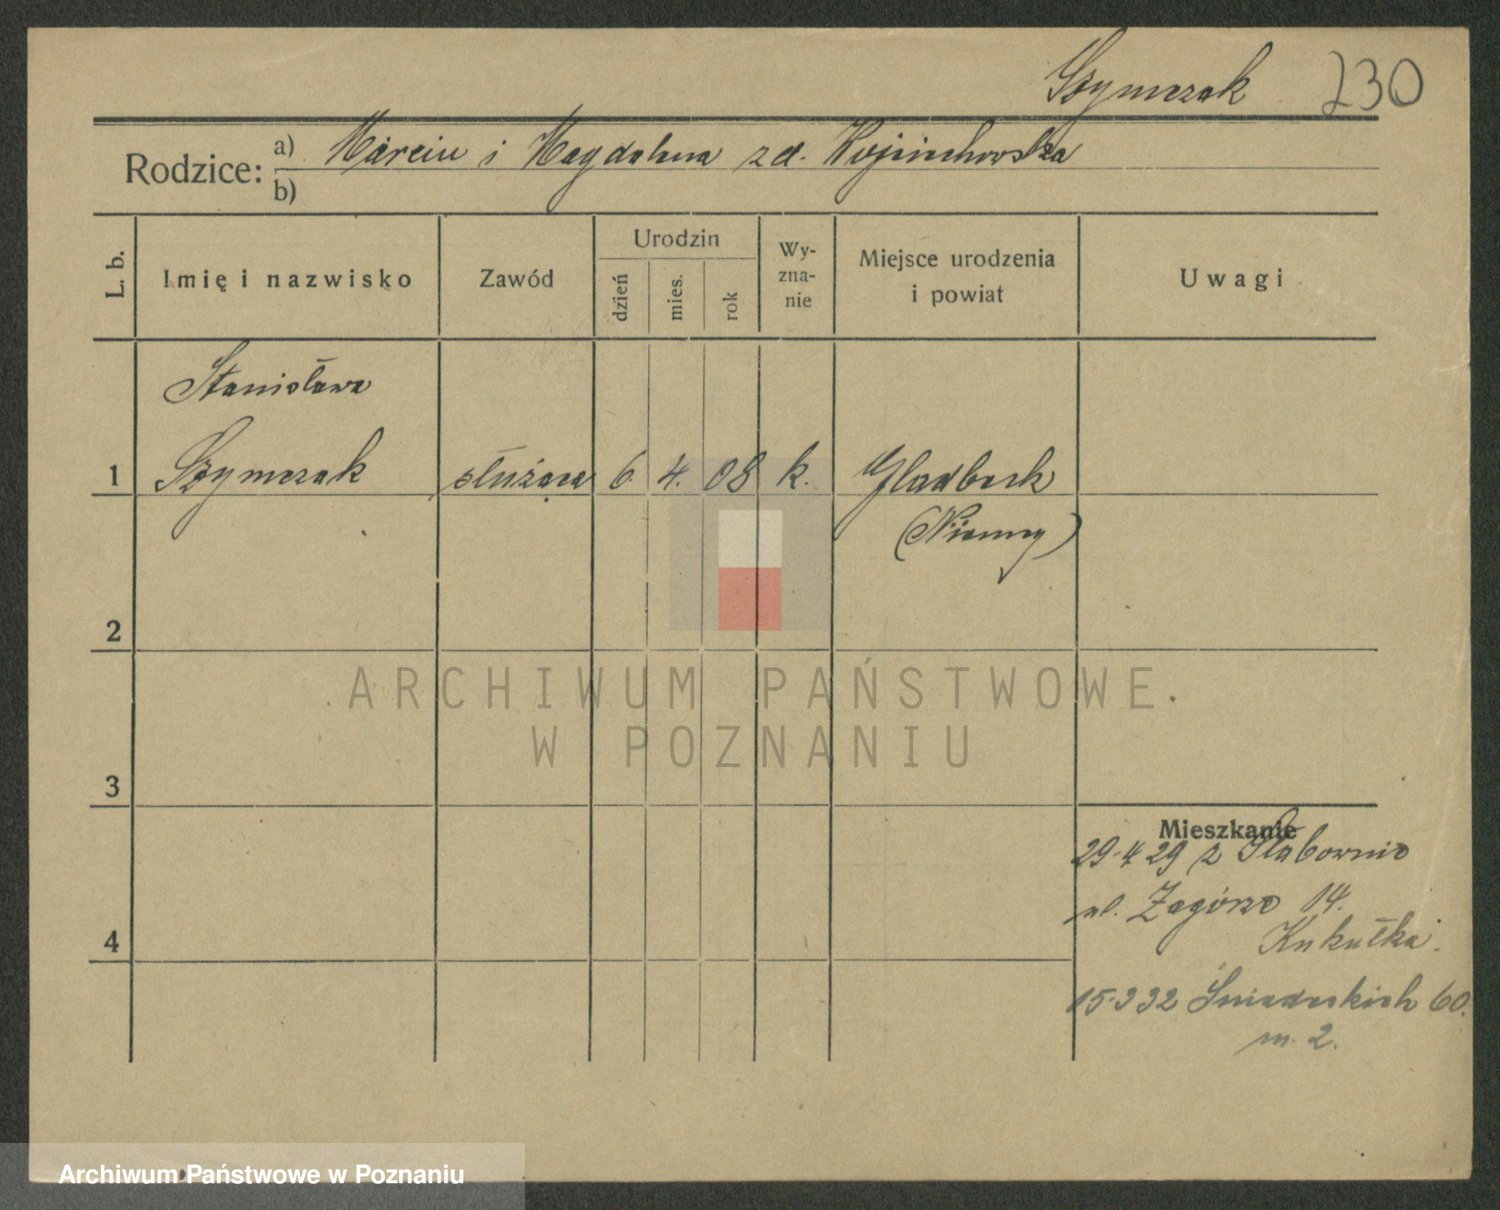 Szymczak 230
Rodzice: a) Marcin i Magdalena zd. Wojciechowska
b)
L. b. Imię i nazwisko Zawód Urodzin dzień mies. rok Wyznanie Miejsce urodzenia i powiat Uwagi
Stanisława
1 Szymczak służąca 6. 4. 08 k. Gladbeck
(Niemcy)
2
ARCHIWUM PAŃSTWOWE
W POZNANIU
3
Mieszkanie
29.4 29 z
ul. Zagórze 14.
4
Kukułka.
15.3 32 Śniadeckich 60.
m. 2.
Archiwum Państwowe w Poznaniu